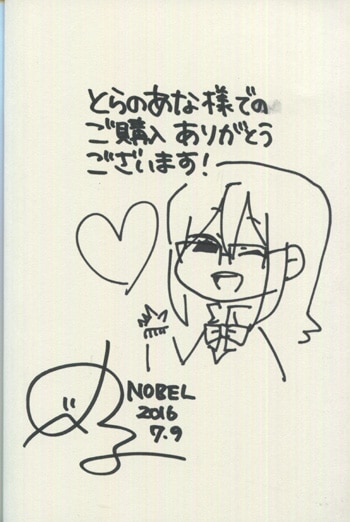 とらのあな様での
ご購入 ありがとう
ございます!
NOBEL
2016
7.9